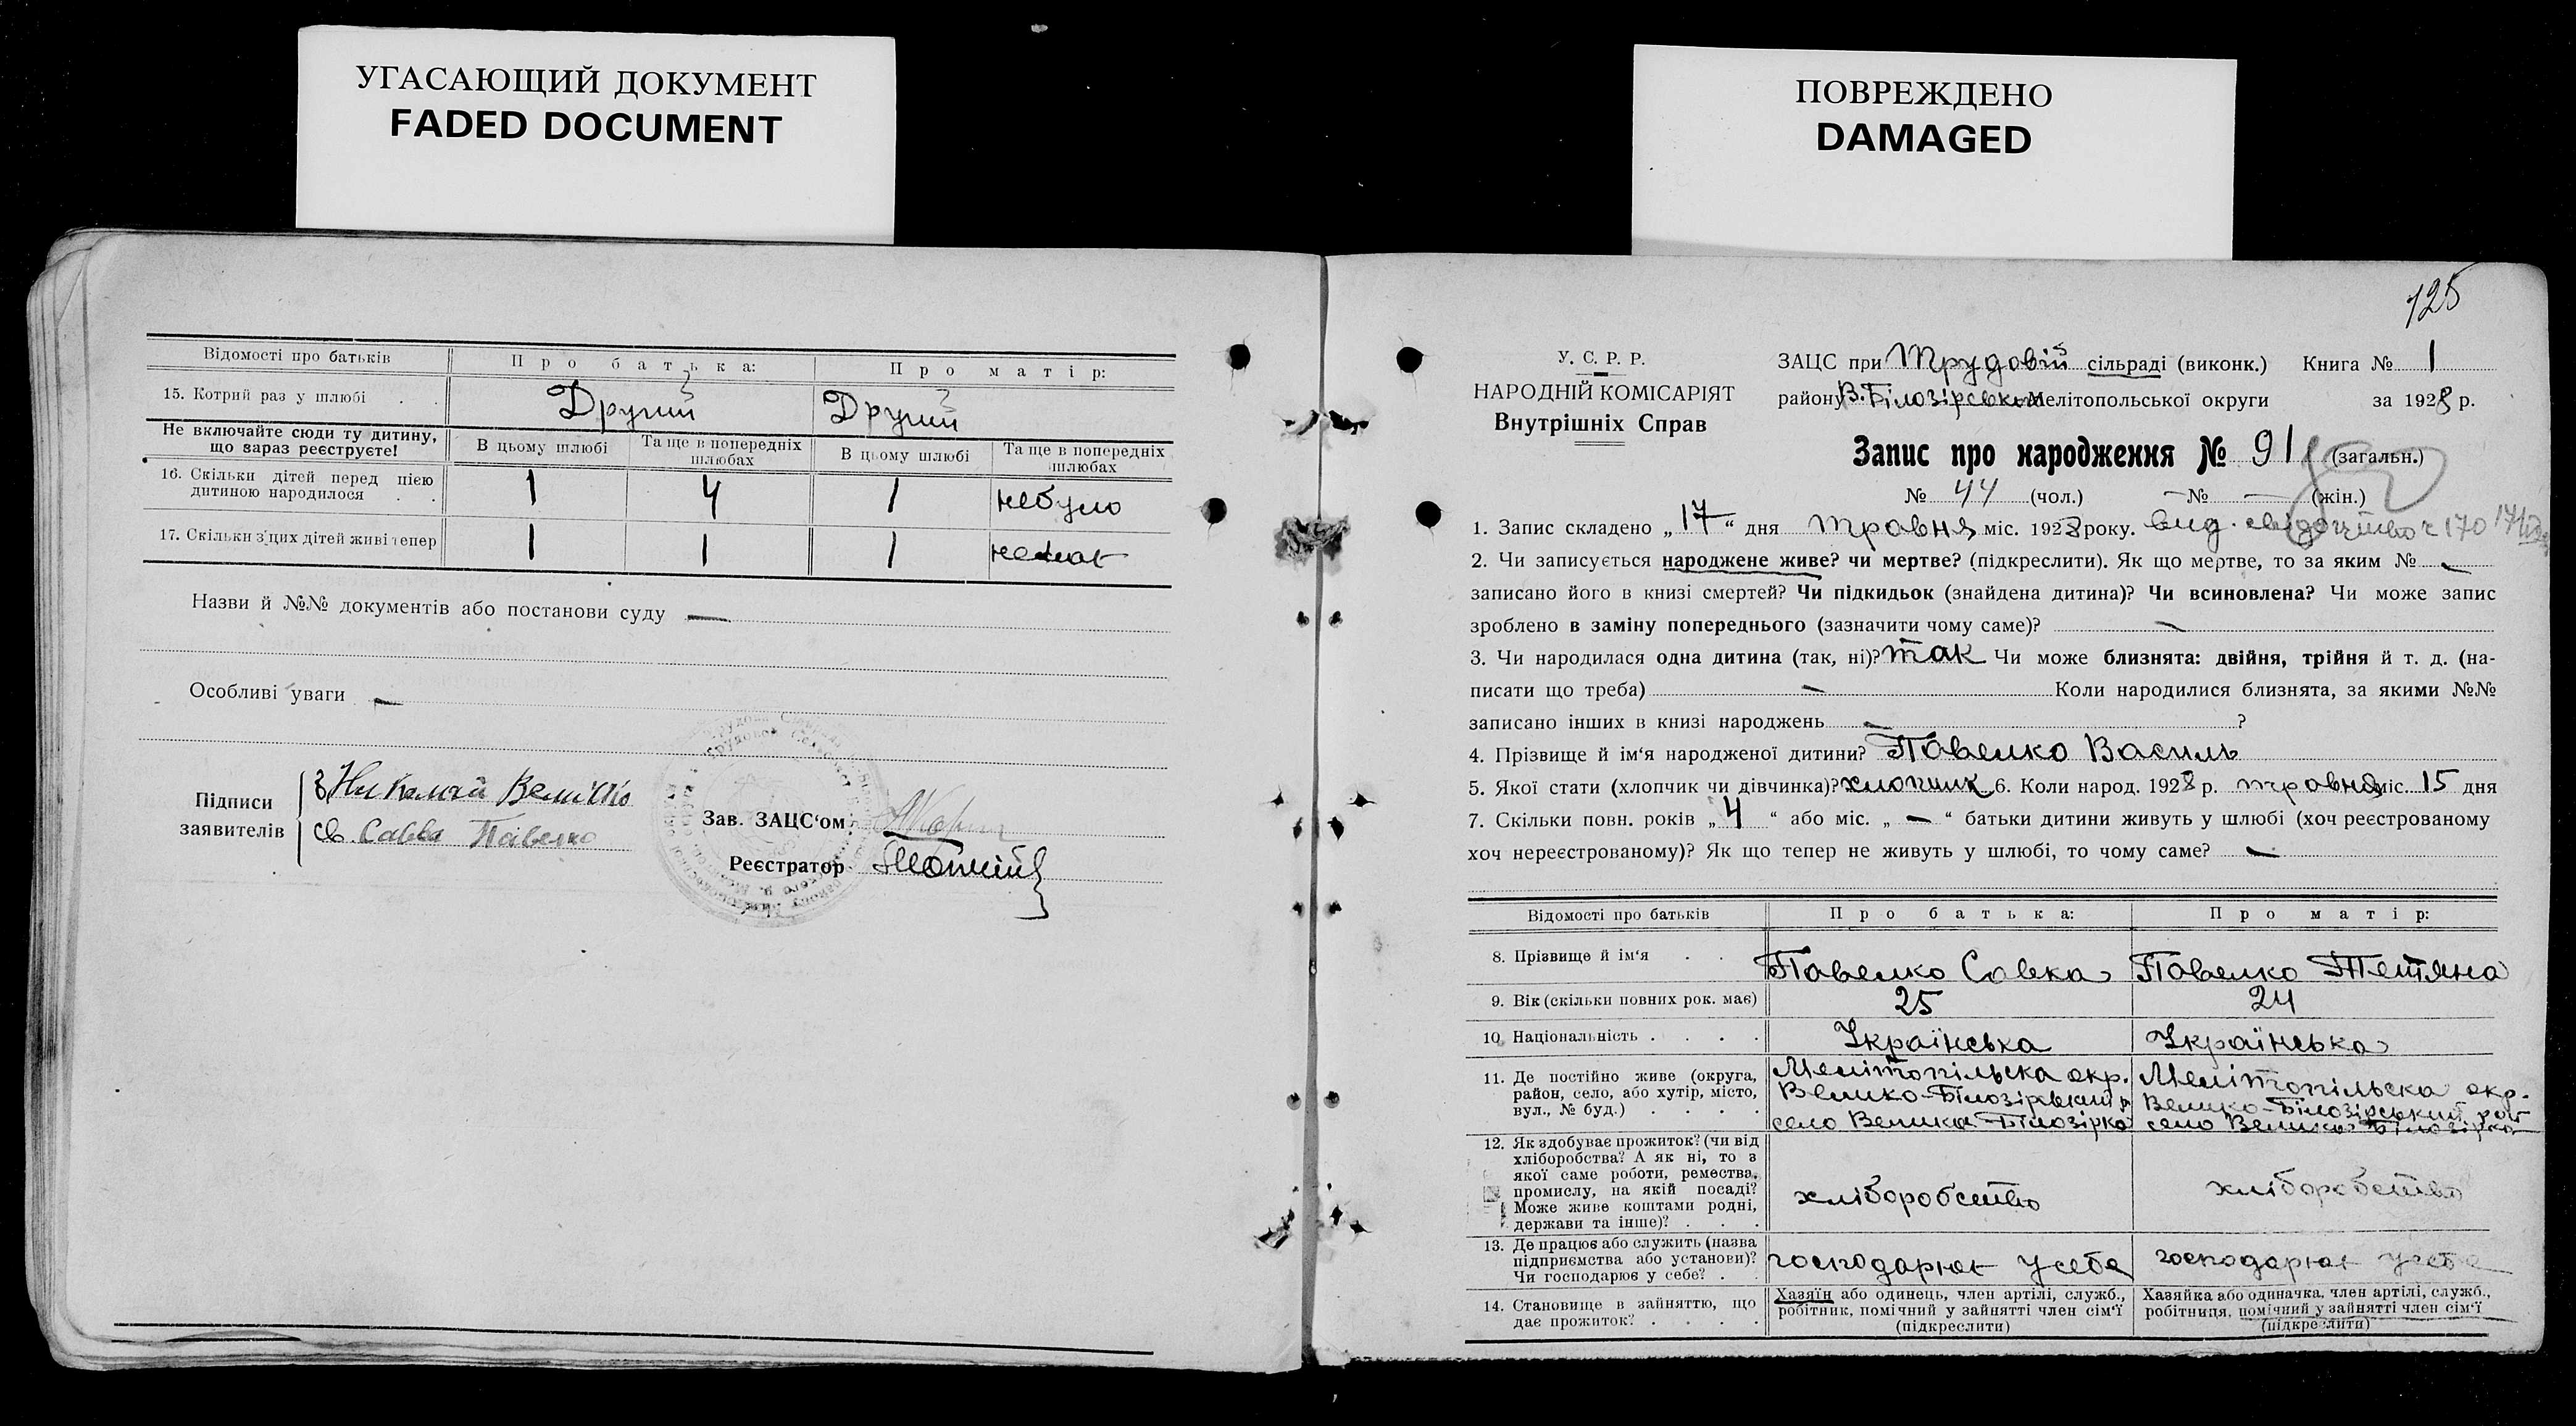 УГАСАЮЩИЙ ДОКУМЕНТ
FADED DOCUMENT
ПОВРЕЖДЕНО
DAMAGED
Відомості про батьків
Про батька:
Про матір:
15. Котрий раз у шлюбі . .
Другий
Другий
Не включайте сюди ту дитину,
що зараз реєструєте!
В цьому шлюбі
Та ще в попередніх
шлюбах
В цьому шлюбі
Та ще в попередніх
шлюбах
16. Скільки дітей перед цією
дитиною народилося . .
1
4
1
небуло
17. Скільки з цих дітей живі тепер
1
1
1
немає
Назви й №№ документів або постанови суду —
Особливі уваги —
Підписи
заявителів
св. Савва Павелко
Зав. ЗАЦС'ом
Реєстратор
125
У. С. Р. Р.
НАРОДНІЙ КОМІСАРІЯТ
Внутрішніх Справ
ЗАЦС при Трудовій сільраді (виконк.) Книга № 1
району В. Білозірськ Мелітопольської округи за 1928 р.
Запис про народження № 91 (загальн.)
№ 44 (чол.) — № — (жін.)
1. Запис складено „17“ дня травня міс. 1928 року. вид. свідоцтво 170
2. Чи записується народжене живе? чи мертве? (підкреслити). Як що мертве, то за яким № —
записано його в книзі смертей? Чи підкидьок (знайдена дитина)? Чи всиновлена? Чи може запис
зроблено в заміну попереднього (зазначити чому саме)? —
3. Чи народилася одна дитина (так, ні)? так Чи може близнята: двійня, трійня й т. д. (на-
писати що треба) — Коли народилися близнята, за якими №№
записано інших в книзі народжень — ?
4. Прізвище й ім'я народженої дитини? Павелко Василь
5. Якої стати (хлопчик чи дівчинка)? хлопчик 6. Коли народ. 1928 р. травня міс. 15 дня
7. Скільки повн. років „4“ або міс. „—“ батьки дитини живуть у шлюбі (хоч реєстрованому
хоч нереєстрованому)? Як що тепер не живуть у шлюбі, то чому саме? —
Відомості про батьків
Про батька:
Про матір:
8. Прізвище й ім'я . .
Павелко Савка
Павелко Тетяна
9. Вік (скільки повних рок. має)
25
24
10. Національність . . . .
Українська
Українська
11. Де постійно живе (округа,
район, село, або хутір, місто,
вул., № буд.) . . . .
Мелітопільска окр.
Велико-Білозірський р
село Велика-Білозірка
Мелітопільска окр.
Велико-Білозірський рай
село Велика Білозірка
12. Як здобуває прожиток? (чи від
хліборобства? А як ні, то з
якої саме роботи, ремества,
промислу, на якій посаді?
Може живе коштами родні,
держави та інше)? . . .
хліборобство
хліборобство
13. Де працює або служить (назва
підприємства або установи)?
Чи господарює у себе? . .
господарює у себе
господарює у себе
14. Становище в зайняттю, що
дає прожиток? . . . .
Хазяїн або одинець, член артілі, служб.,
робітник, помічний у зайнятті член сім'ї
(підкреслити)
Хазяйка або одиначка, член артілі, служб.,
робітниця, помічний у зайнятті член сім'ї
(підкреслити)